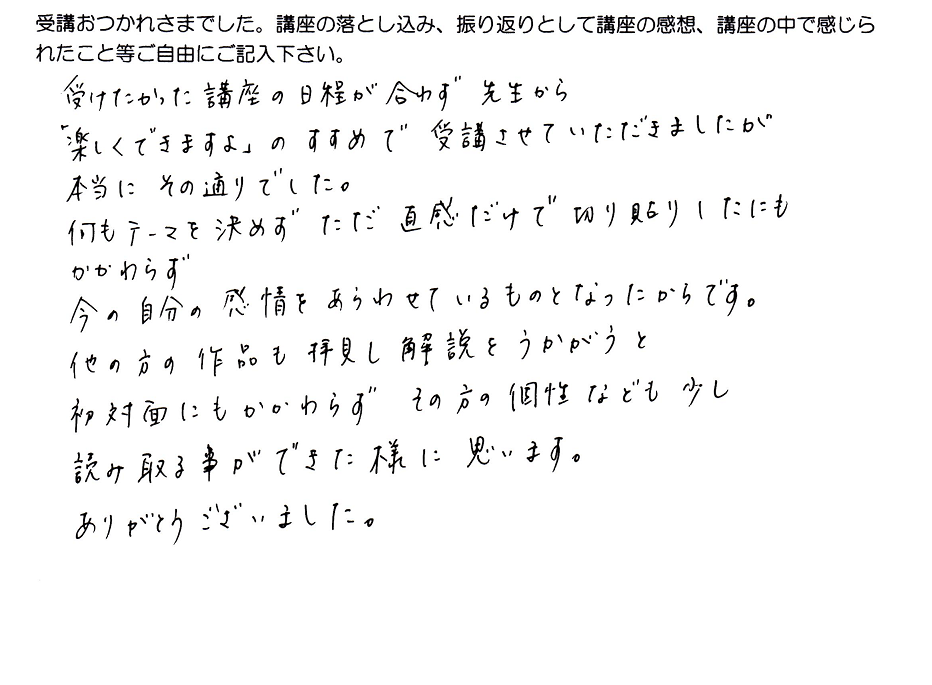 受講おつかれさまでした。講座の落とし込み、振り返りとして講座の感想、講座の中で感じら
れたこと等ご自由にご記入下さい。
受けたかった講座の日程が合わず 先生から
「楽しくできますよ」のすすめで 受講させていただきましたが
本当に その通りでした。
何もテーマを決めず ただ直感だけで切り貼りしたにも
かかわらず
今の自分の感情をあらわせているものとなったからです。
他の方の作品も拝見し解説をうかがうと
初対面にもかかわらず その方の個性なども少し
読み取る事ができた様に思います。
ありがとうございました。